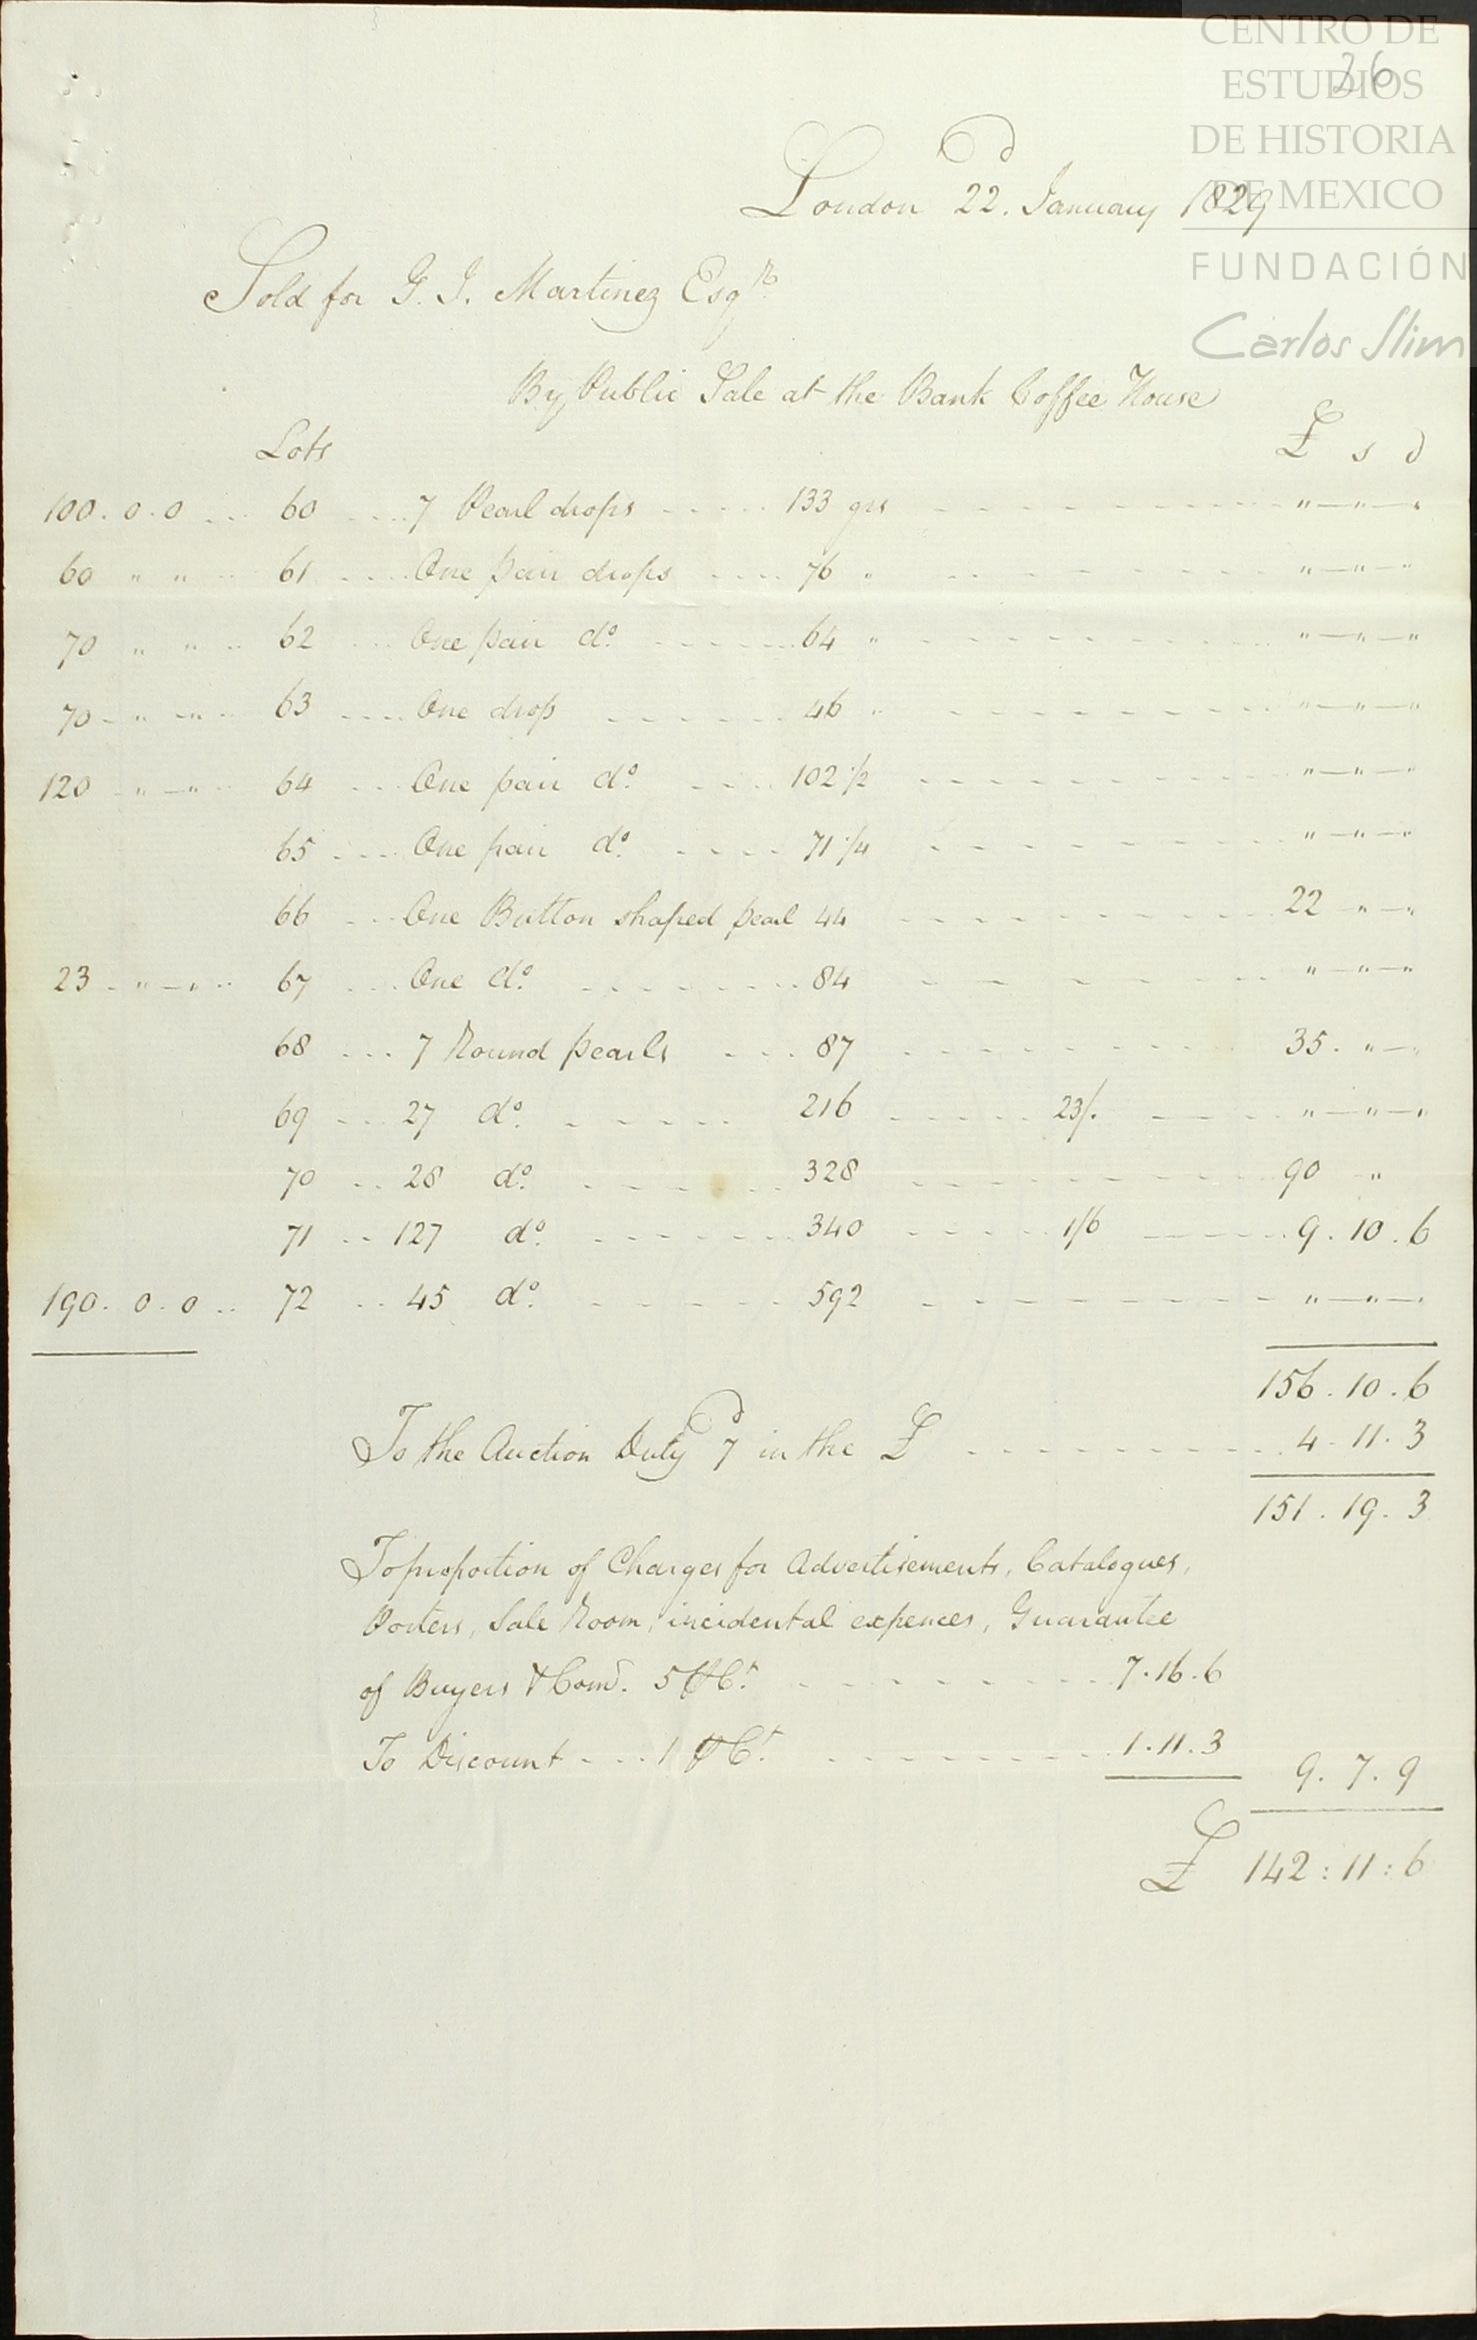 CENTRO DE
ESTUDIOS
DE HISTORIA
DE MEXICO
FUNDACIÓN
Carlos Slim
26
London 22. January 1829
Sold for G. J. Martinez Esqr.
By Public Sale at the Bank Coffee House
Lots £ s d
100.0.0 ... 60 .... 7 Pearl drops ..... 133 grs "—"—"
60 " " 61 .... One pair drops .... 76 " "—"—"
70 " " 62 ... One pair do. ...... 64 " "—"—"
70 " " 63 .... One drop ...... 46 " "—"—"
120 " " 64 ... One pair do. .... 102 1/2 "—"—"
65 ... One pair do. .... 71 1/4 "—"—"
66 ... One Button shaped pearl 44 22 "—"
23 " " 67 ... One do. ....... 84 "—"—"
68 ... 7 Round pearls ... 87 35. "—"
69 ... 27 do. ..... 216 ..... 23/. "—"—"
70 .. 28 do. ..... 328 90 "
71 .. 127 do. ...... 340 .... 1/6 9.10.6
190.0.0 .. 72 .. 45 do. ..... 592 "—"—"
156.10.6
To the Auction Duty 7d in the £ 4.11.3
151.19.3
To proportion of Charges for Advertisements, Catalogues,
Porters, Sale Room, incidental expences, Guarantee
of Buyers & Comn. 5 ⅌ Ct. 7.16.6
To Discount ... 1 ⅌ Ct. 1.11.3 9.7.9
£ 142:11:6